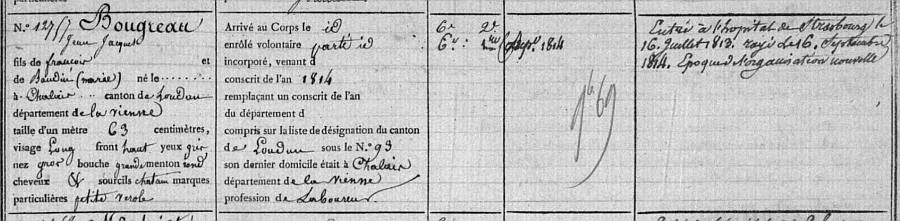 N.º 127/7 Bougreau
Jean Jacques
fils de francois et
de Baudin (marie) né le
à Chalais canton de Loudun
département de la vienne
taille d'un mètre 63 centimètres,
visage Long front haut yeux gris
nez gros bouche grande menton rond
cheveux & sourcils chatain marques
particulières petite verole
Arrivé au Corps le id
enrôlé volontaire parti id
incorporé, venant d
conscrit de l'an 1814
remplaçant un conscrit de l'an
du département d
compris sur la liste de désignation du canton
de Loudun sous le N.º 93
son dernier domicile était à Chalais
département de la vienne
profession de Laboureur.
6e 2e
6e
1814
69
Entré à l'hopital de Strasbourg le
16. Juillet 1813. rayé le 16. Septembre
1814. Epoque d'organisation nouvelle